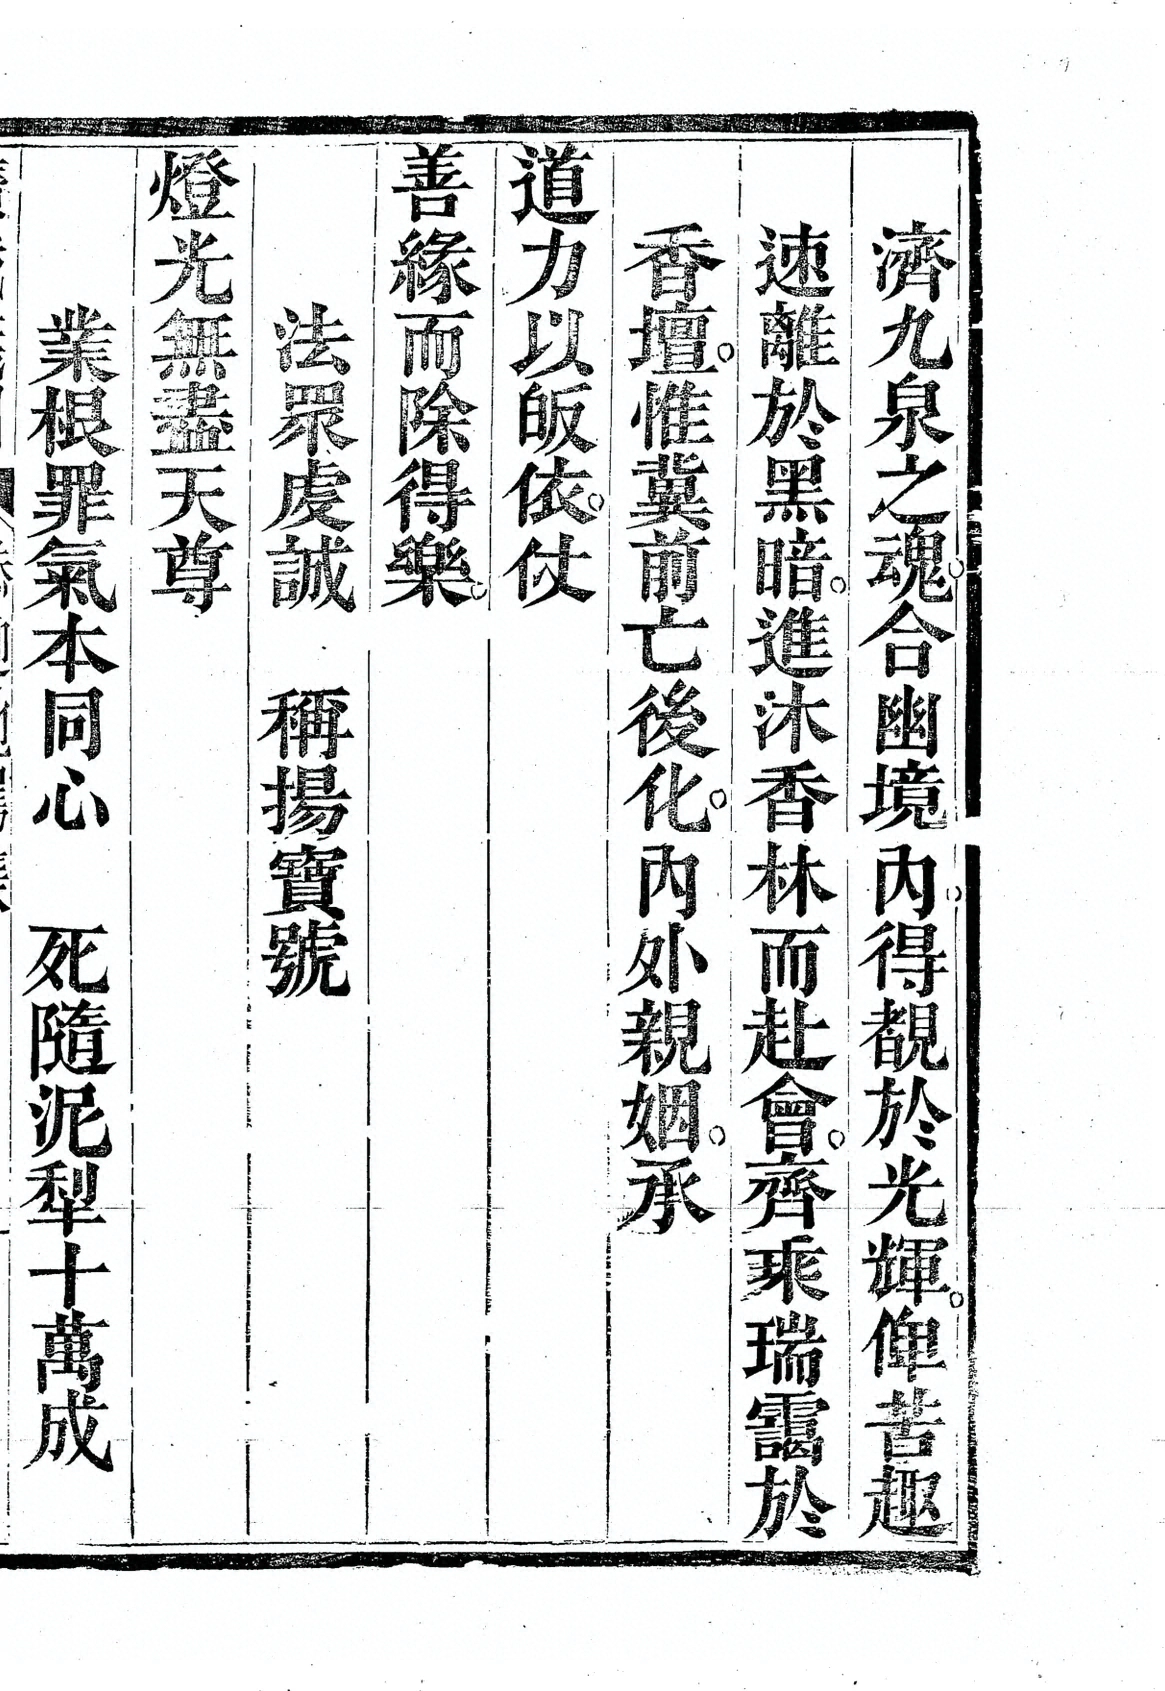 濟九泉之魂。合幽境內。得覩於光輝。俾苦趣
速離於黑暗。進沐香林而赴會。齊乘瑞靄於
香壇。惟兾前亡後化。內外親姻。承
道力以皈依。仗
善緣而除得樂。
法眾虔誠　稱揚寶號
燈光無盡天尊
業根罪氣本同心　死隨泥犁十萬成